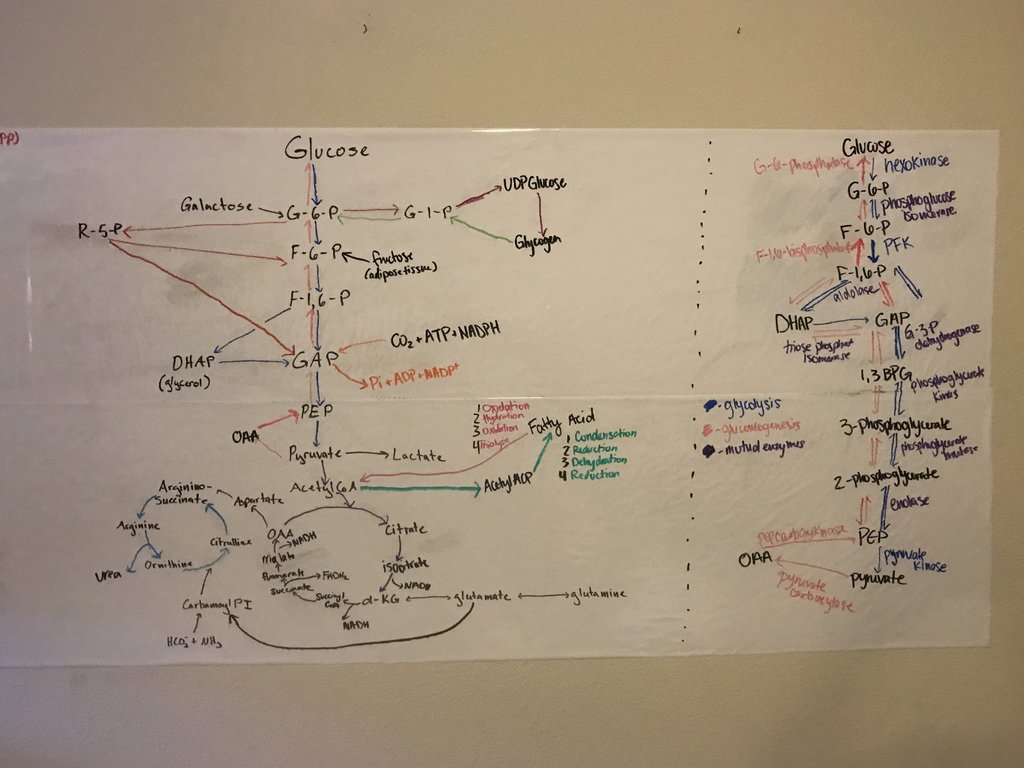 PP)
Glucose
Galactose
G-6-P
G-1-P
UDPGlucose
Glycogen
R-5-P
F-6-P
fructose
(adipose tissue)
F-1,6-P
DHAP
(glycerol)
GAP
CO₂ + ATP + NADPH
Pi + ADP + NADP⁺
PEP
OAA
Pyruvate
Lactate
1 Oxidation
2 Hydration
3 Oxidation
4
Fatty Acid
1 Condensation
2 Reduction
3 Dehydration
4 Reduction
Acetyl CoA
Acetyl ACP
Arginino-
Succinate
Aspartate
Arginine
Citrulline
Urea
Ornithine
Carbamoyl PI
HCO₃⁻ + NH₃
OAA
NADH
Malate
Fumarate
FADH₂
Succinate
Succinyl
CoA
Citrate
isocitrate
NADH
α-KG
NADH
glutamate
glutamine
Glucose
G-6-phosphatase
hexokinase
G-6-P
phosphoglucose
isomerase
F-6-P
F-1,6-bisphosphatase
PFK
F-1,6-P
aldolase
DHAP
GAP
triose phosphat
isomerase
G-3-P
dehydrogenase
1,3 BPG
phosphoglycerate
kinas
3-phosphoglycerate
phosphoglycerate
mutase
2-phosphoglycerate
enolase
PEP carboxykinase
PEP
OAA
pyruvate
kinase
pyruvate
pyruvate
carboxylase
-glycolysis
-gluconeogenesis
-mutual enzymes